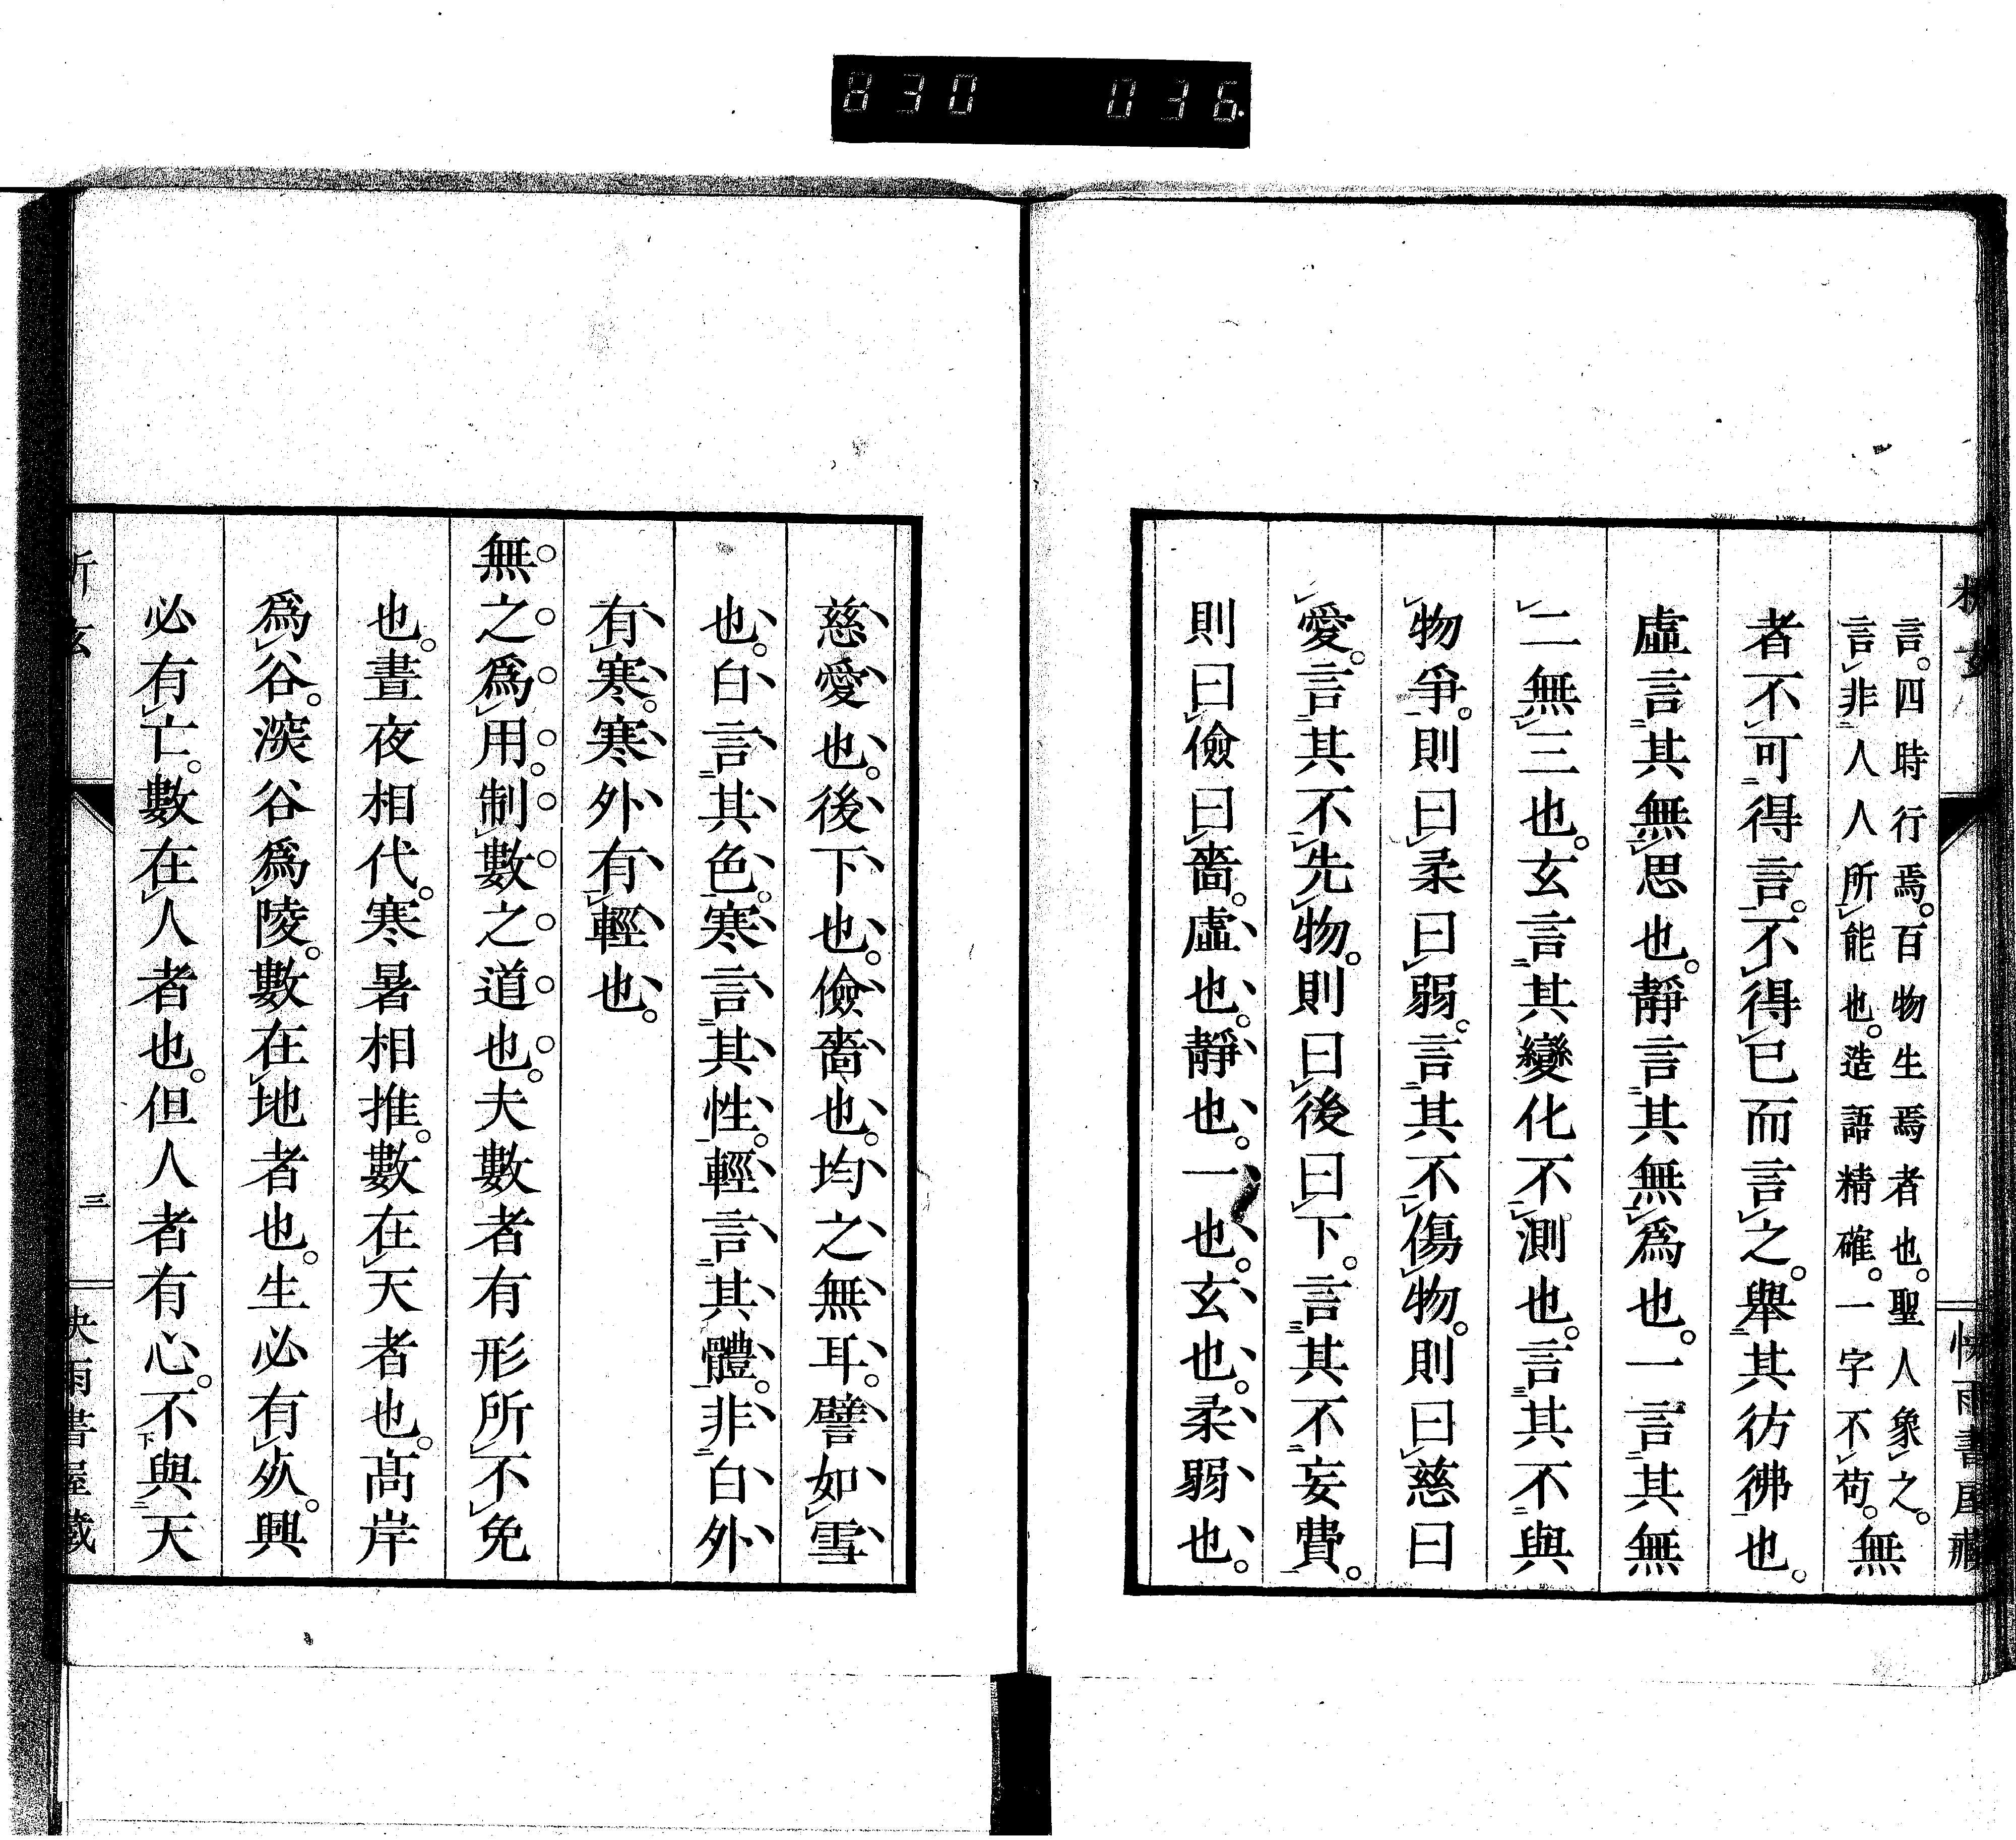 830 036
析玄
快雨書屋藏
言。四時行焉。百物生焉者也。聖人象之。
言非人人所能也。造語精確。一字不苟。無
者不可得言。不得已而言之。舉其彷彿也。
虛言其無思也。靜言其無爲也。一言其無
二無三也。玄言其變化不測也。言其不與
物爭。則曰柔曰弱。言其不傷物。則曰慈曰
愛。言其不先物。則曰後曰下。言其不妄費。
則曰儉曰嗇。虛也。靜也。一也。玄也。柔弱也。
慈愛也。後下也。儉嗇也。均之無耳。譬如雪
也。白言其色。寒言其性。輕言其體。非白外
有寒。寒外有輕也。
無之爲用。制數之道也。夫數者有形所不免
也。晝夜相代。寒暑相推。數在天者也。高岸
爲谷。深谷爲陵。數在地者也。生必有死。興
必有亡。數在人者也。但人者有心。不下與二天
析玄
三
快雨書屋藏